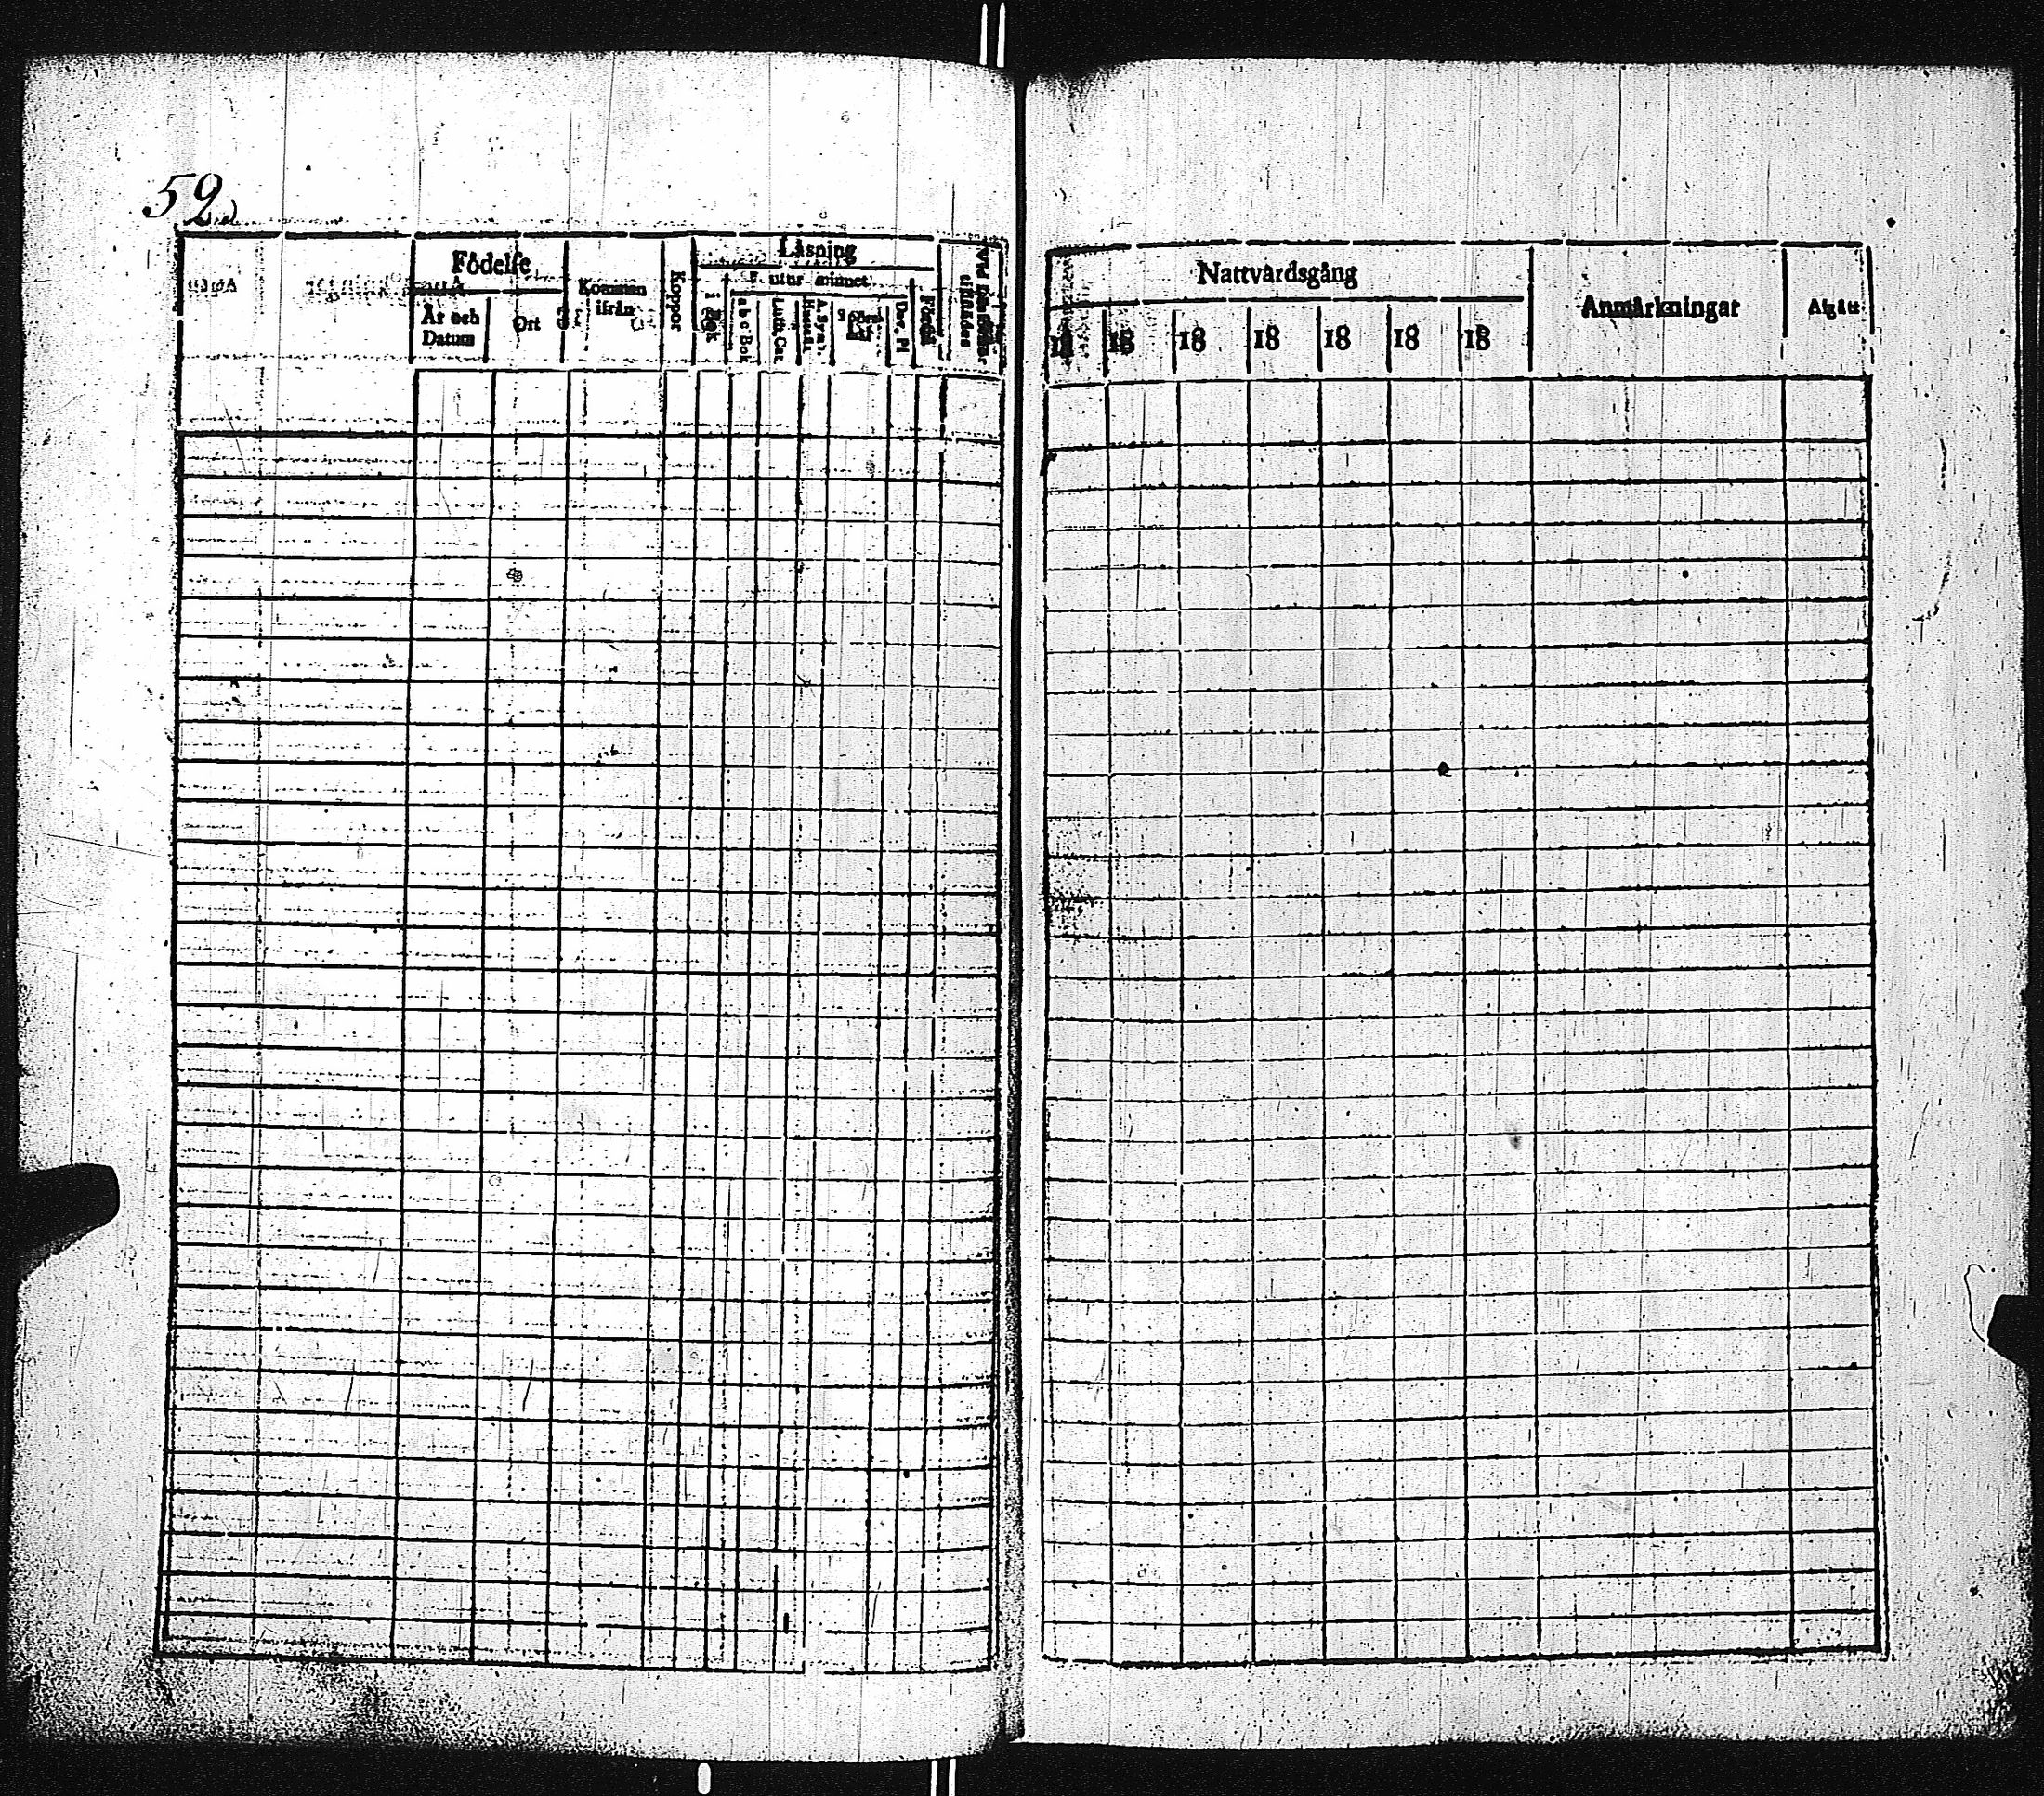 52
Födelse
År och Datum
Ort
Kommen ifrån
Koppor
Läsning
i Bok
utur minnet
a b c Bok
Luth. Cat
A. Symb.
Dav. Pl
Förstå
Nattvardsgång
18 18 18 18 18 18 18
Anmärkningar
Afgått